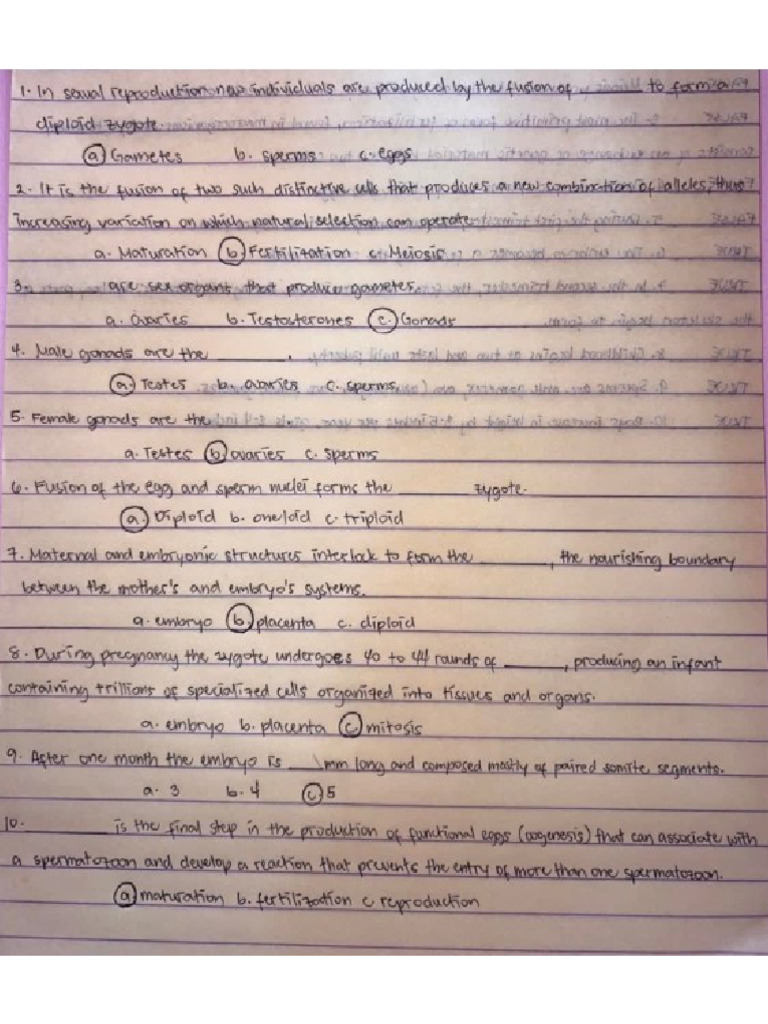 1. In sexual reproduction new individuals are produced by the fusion of ______ to form a
diploid zygote.
a. Gametes b. sperms c. eggs
2. It is the fusion of two such distinctive cells that produces a new combination of alleles, thus
increasing variation on which natural selection can operate.
a. Maturation b. Fertilization c. Meiosis
3. ______ are sex organs that produce gametes.
a. Ovaries b. Testosterones c. Gonads
4. Male gonads are the ______.
a. Testes b. ovaries c. sperms
5. Female gonads are the
a. Testes b. ovaries c. sperms
6. Fusion of the egg and sperm nuclei forms the ______ zygote.
a. Diploid b. oneloid c. triploid
7. Maternal and embryonic structures interlock to form the ______, the nourishing boundary
between the mother's and embryo's systems.
a. embryo b. placenta c. diploid
8. During pregnancy the zygote undergoes 40 to 44 rounds of ______, producing an infant
containing trillions of specialized cells organized into tissues and organs.
a. embryo b. placenta c. mitosis
9. After one month the embryo is ____ mm long and composed mostly of paired somite segments.
a. 3 b. 4 c. 5
10. ________ is the final step in the production of functional eggs (oogenesis) that can associate with
a spermatozoon and develop a reaction that prevents the entry of more than one spermatozoon.
a. maturation b. fertilization c reproduction